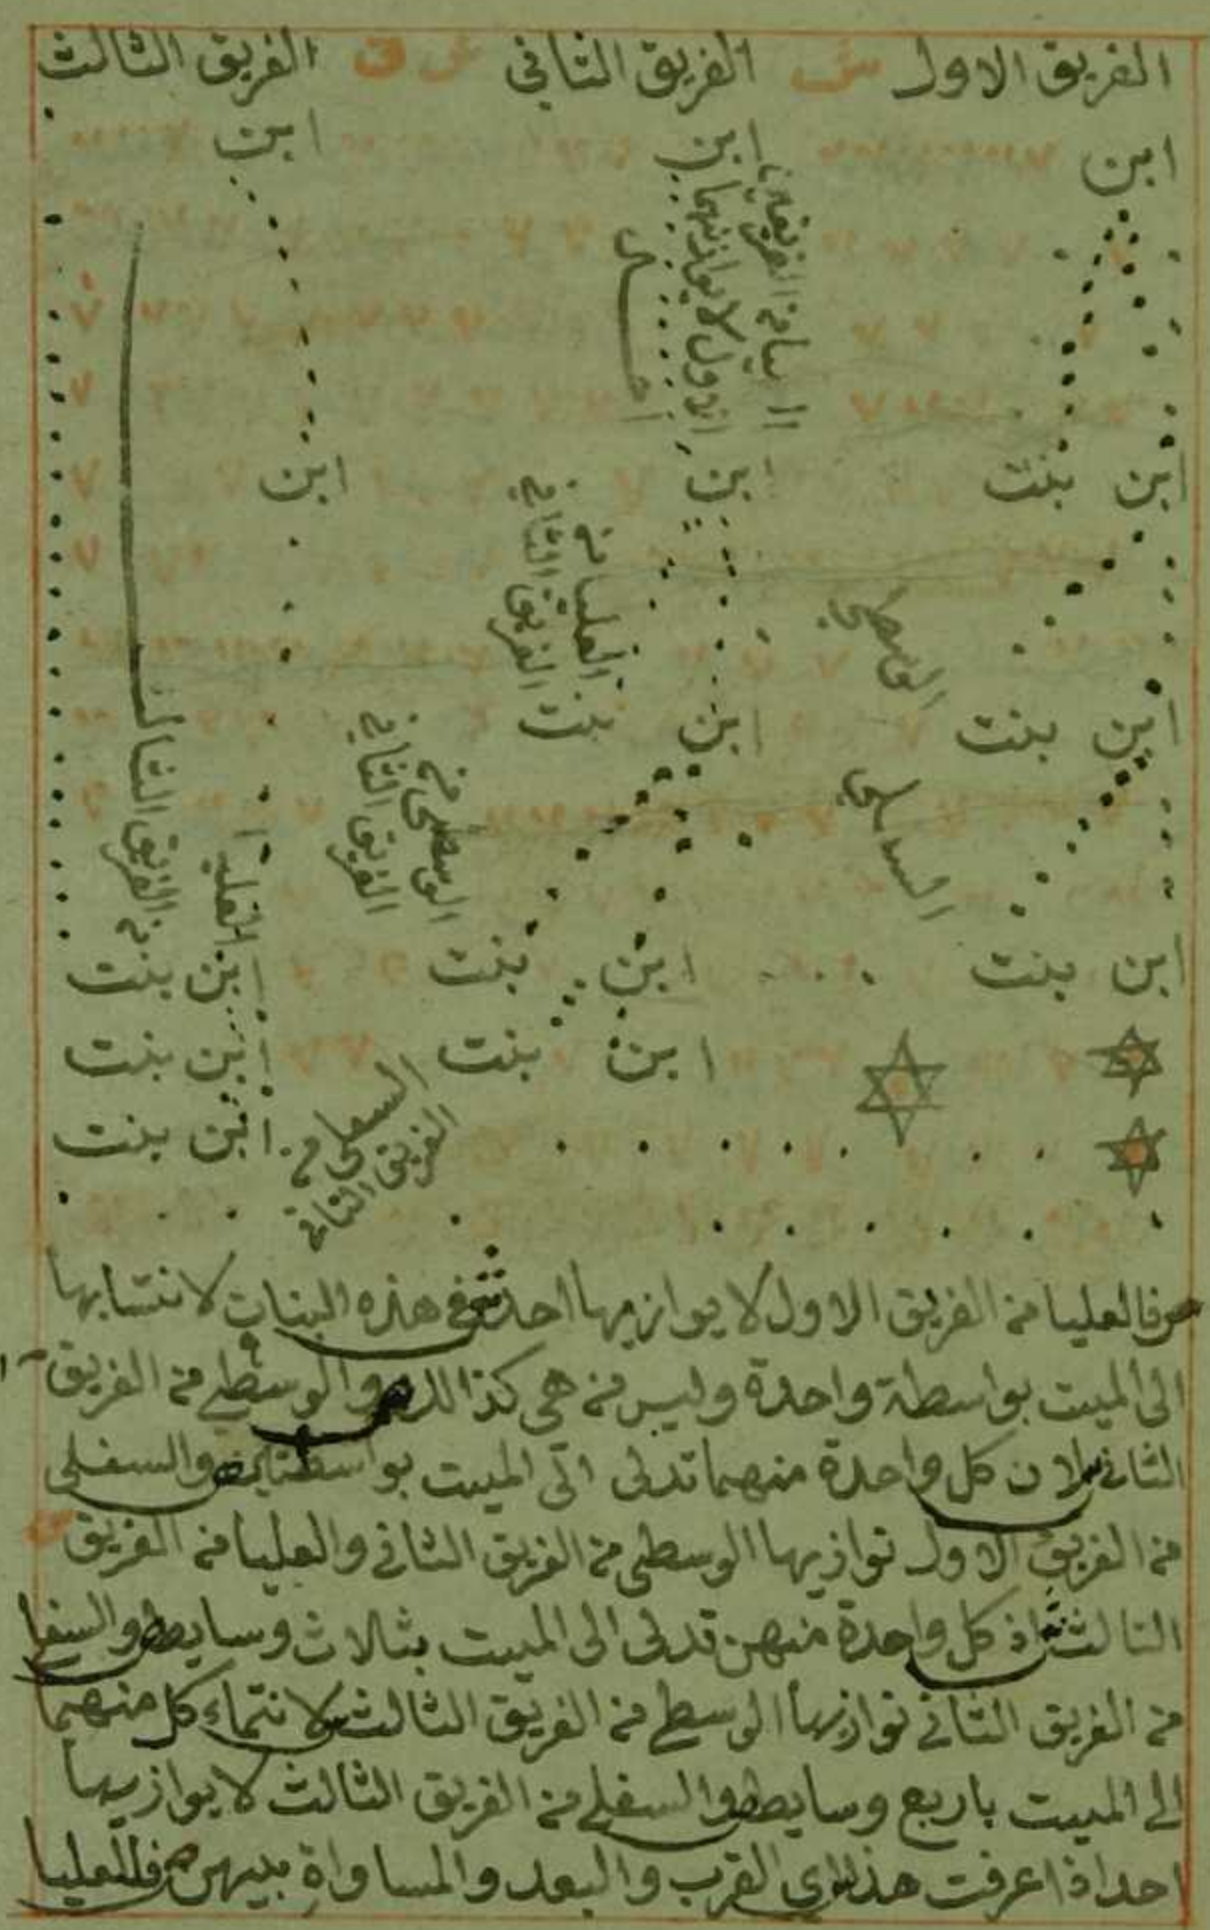 الفريق الاول ش الفريق الثاني ش ق الفريق الثالث
ابن ابن ابن
ابن بنت ابن ابن
الوسطى
العليا من
الفريق الثاني
ابن بنت ابن بنت
السفلى
الوسطى من
الفريق الثاني
العليا
من الفريق الثالث
ابن بنت ابن بنت ابن بنت
ابن بنت ابن بنت
ابن بنت
السفلى من
الفريق الثاني
ص فالعليا من الفريق الاول لا يوازيها احد ش في هذه البنات لانتسابها
الى الميت بواسطة واحدة وليس من هي كذالك والوسطى من الفريق
الثاني لان كل واحدة منهما تدلى الى الميت بواسطتين ص والسفلى
من الفريق الاول توازيها الوسطى من الفريق الثاني والعليا من الفريق
الثالث ش اذ كل واحدة منهن تدلى الى الميت بثلاث وسايط ص والسفلى
من الفريق الثاني توازيها الوسطى من الفريق الثالث ش لانتماء كل منهما
الى الميت باربع وسايط ص والسفلى من الفريق الثالث لا يوازيها
احد اذا عرفت هذا ش اى القرب والبعد والمساواة بينهن ص فللعليا